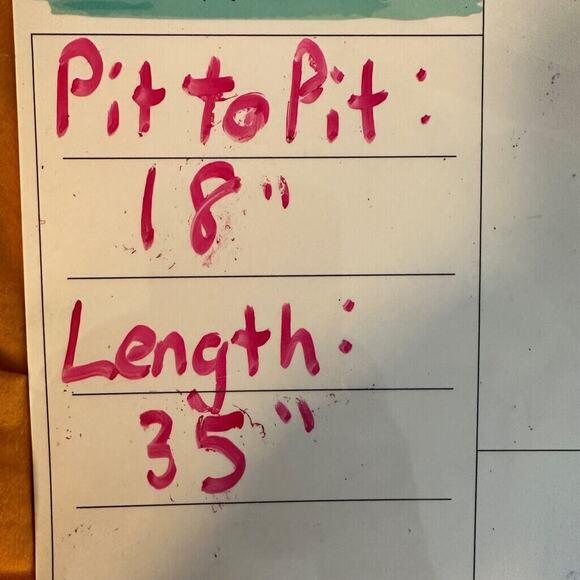 Pit to Pit:
18"
Length:
35"